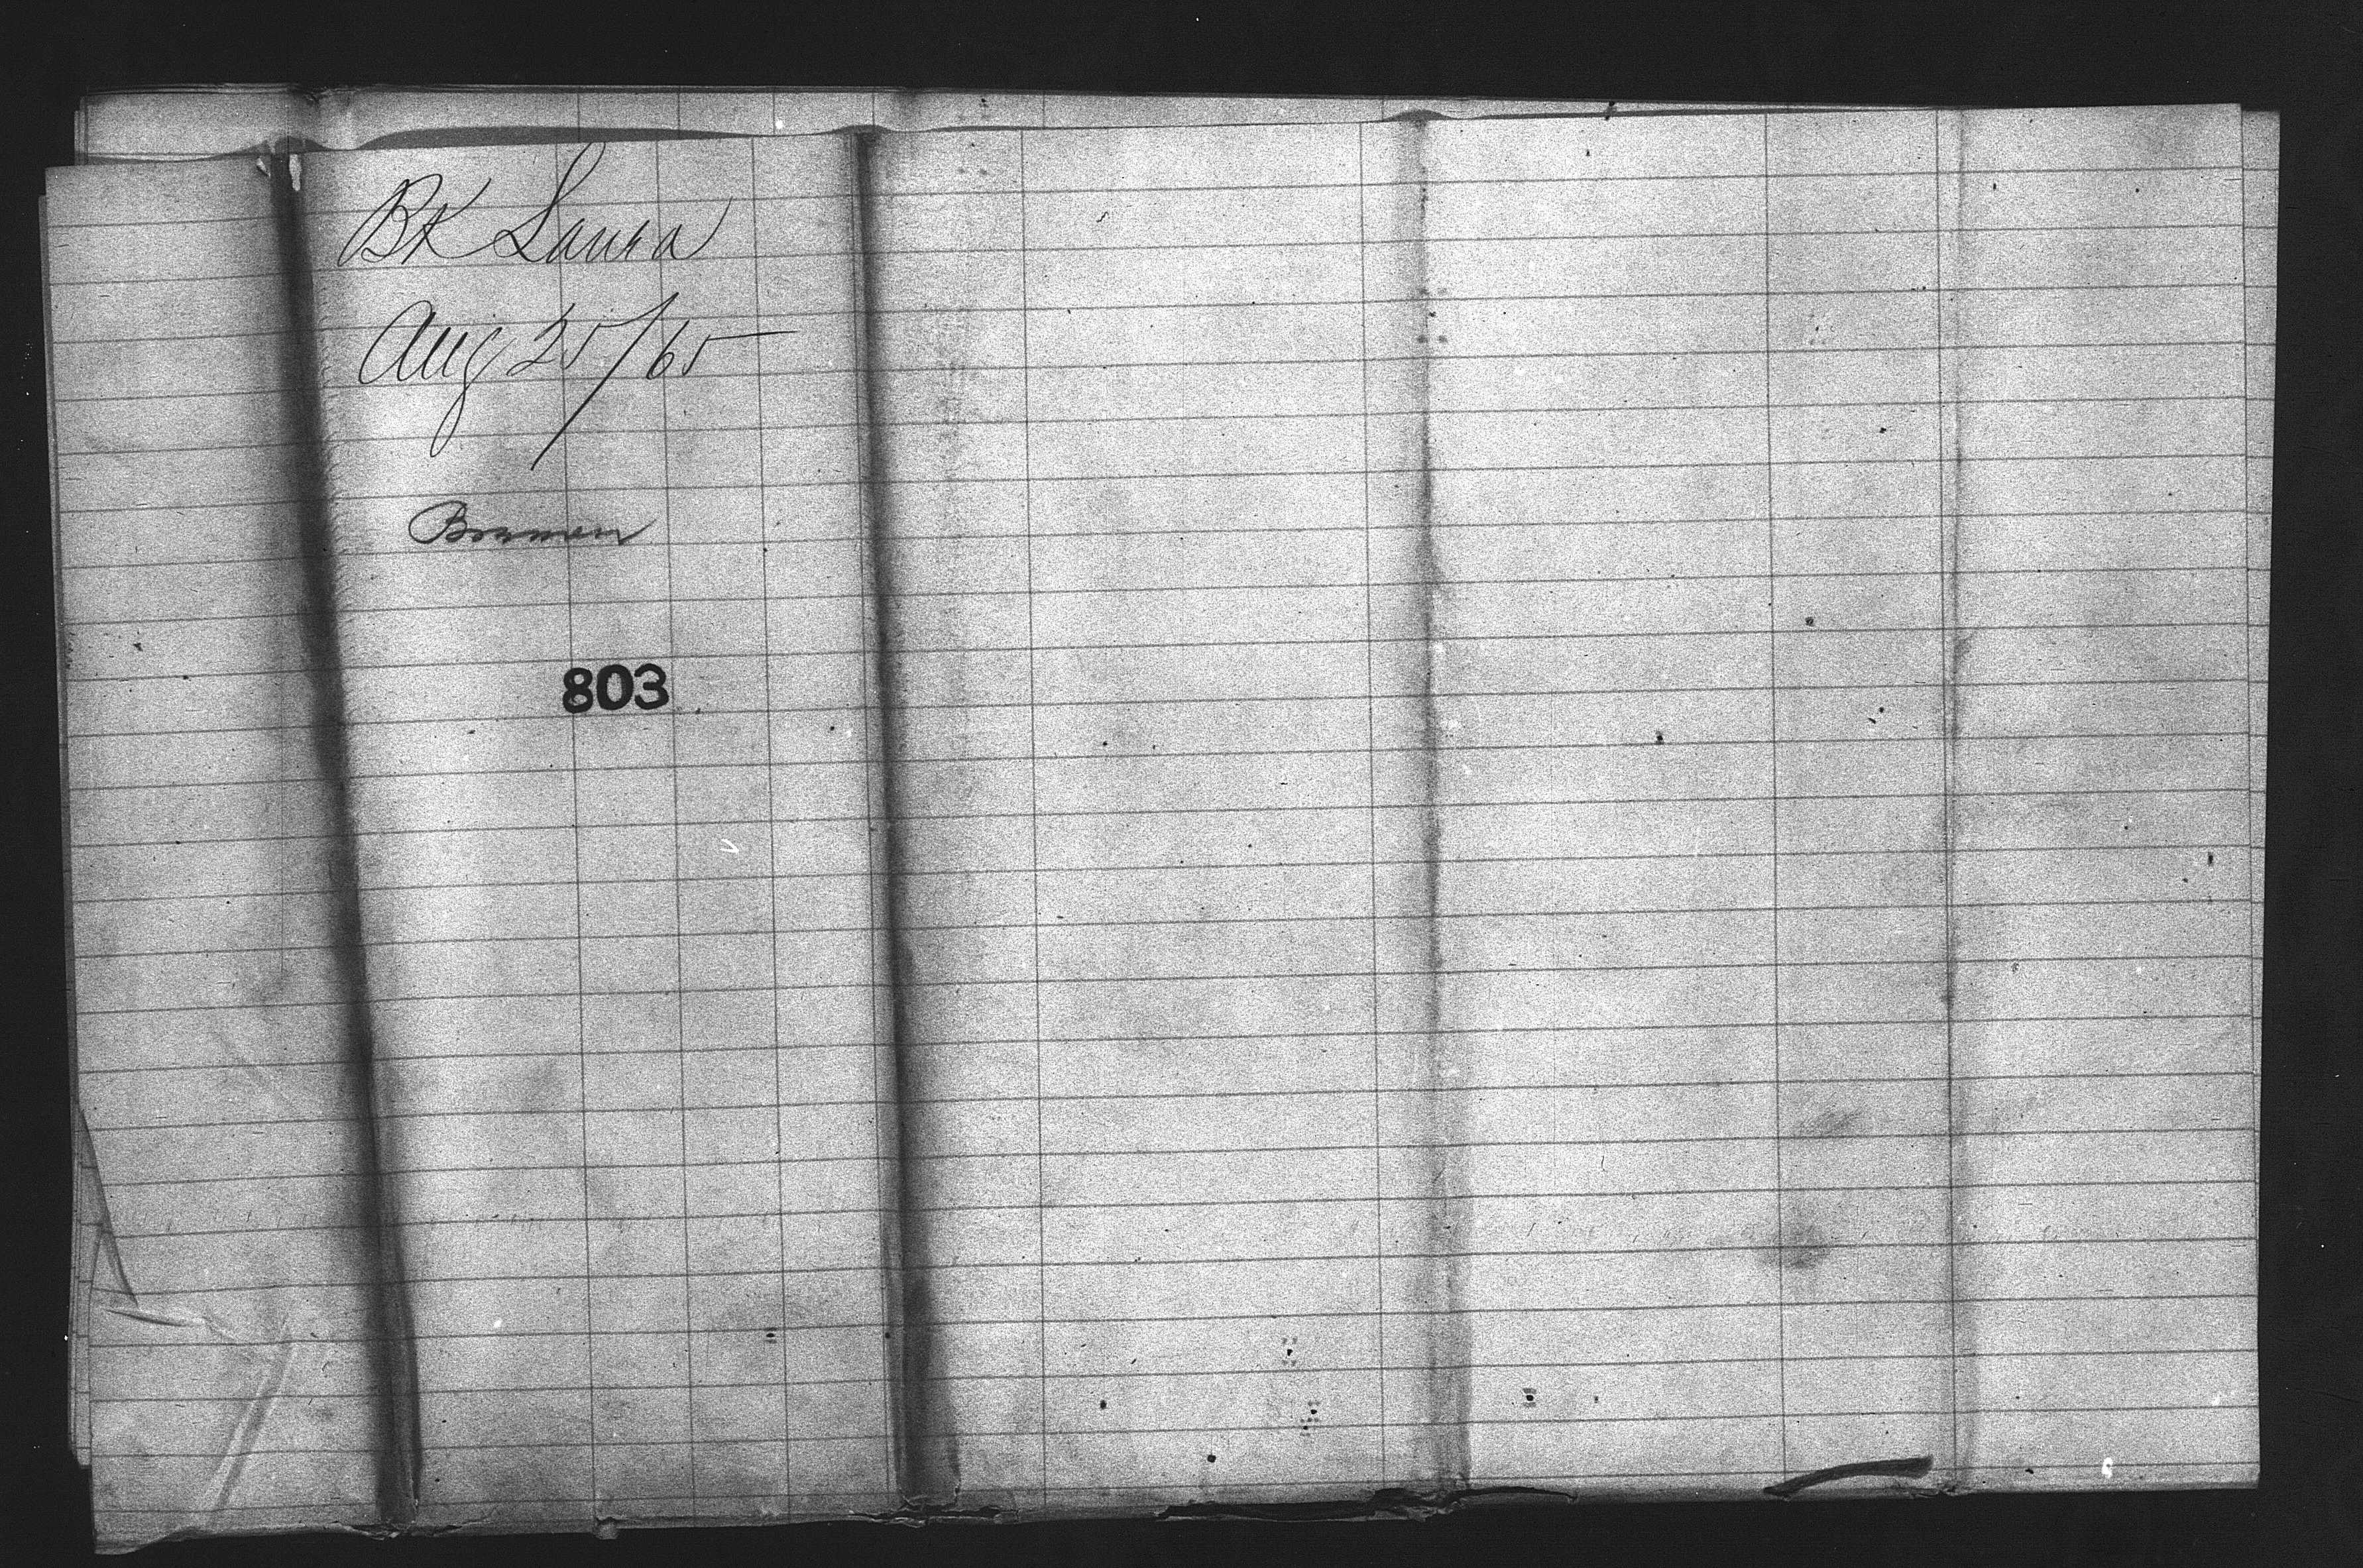 Bk Laura
Aug 25/65
Bremen
803